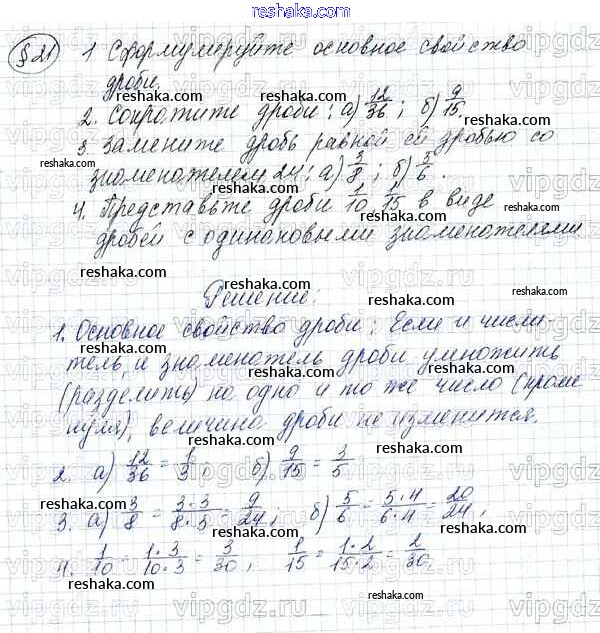 reshaka.com
§21 1 Сформулируйте основное свойство
дроби.
2. Сократите дроби: а) 12/36; б) 9/15.
3. Замените дробь равной ей дробью со
знаменателем 24: а) 3/8; б) 5/6.
4. Представьте дроби 1/10, 1/15 в виде
дробей с одинаковыми знаменателями
Решение:
1. Основное свойство дроби: Если и числи-
тель, и знаменатель дроби умножить
(разделить) на одно и то же число (кроме
нуля), величина дроби не изменится.
2. а) 12/36 = 1/3; б) 9/15 = 3/5
3. а) 3/8 = 3·3/8·3 = 9/24; б) 5/6 = 5·4/6·4 = 20/24;
4. 1/10 = 1·3/10·3 = 3/30, 1/15 = 1·2/15·2 = 2/30.
reshaka.com
vipgdz.ru